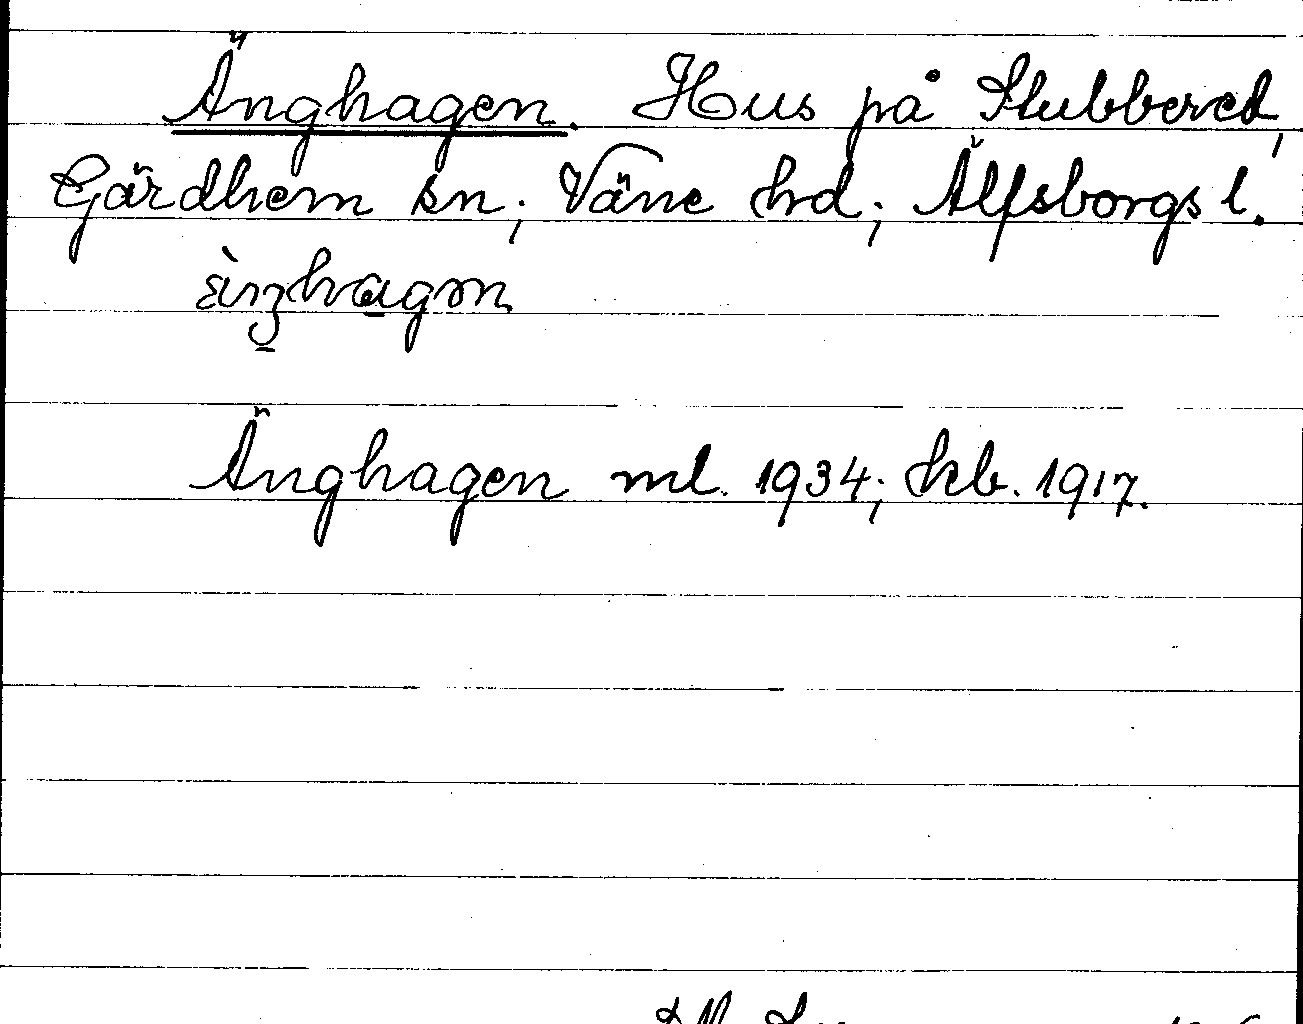 Änghagen. Hus på Stubbered,
Gärdhem sn; Väne hd; Älfsborgs l.
Änghagen ml. 1934; kb. 1917.